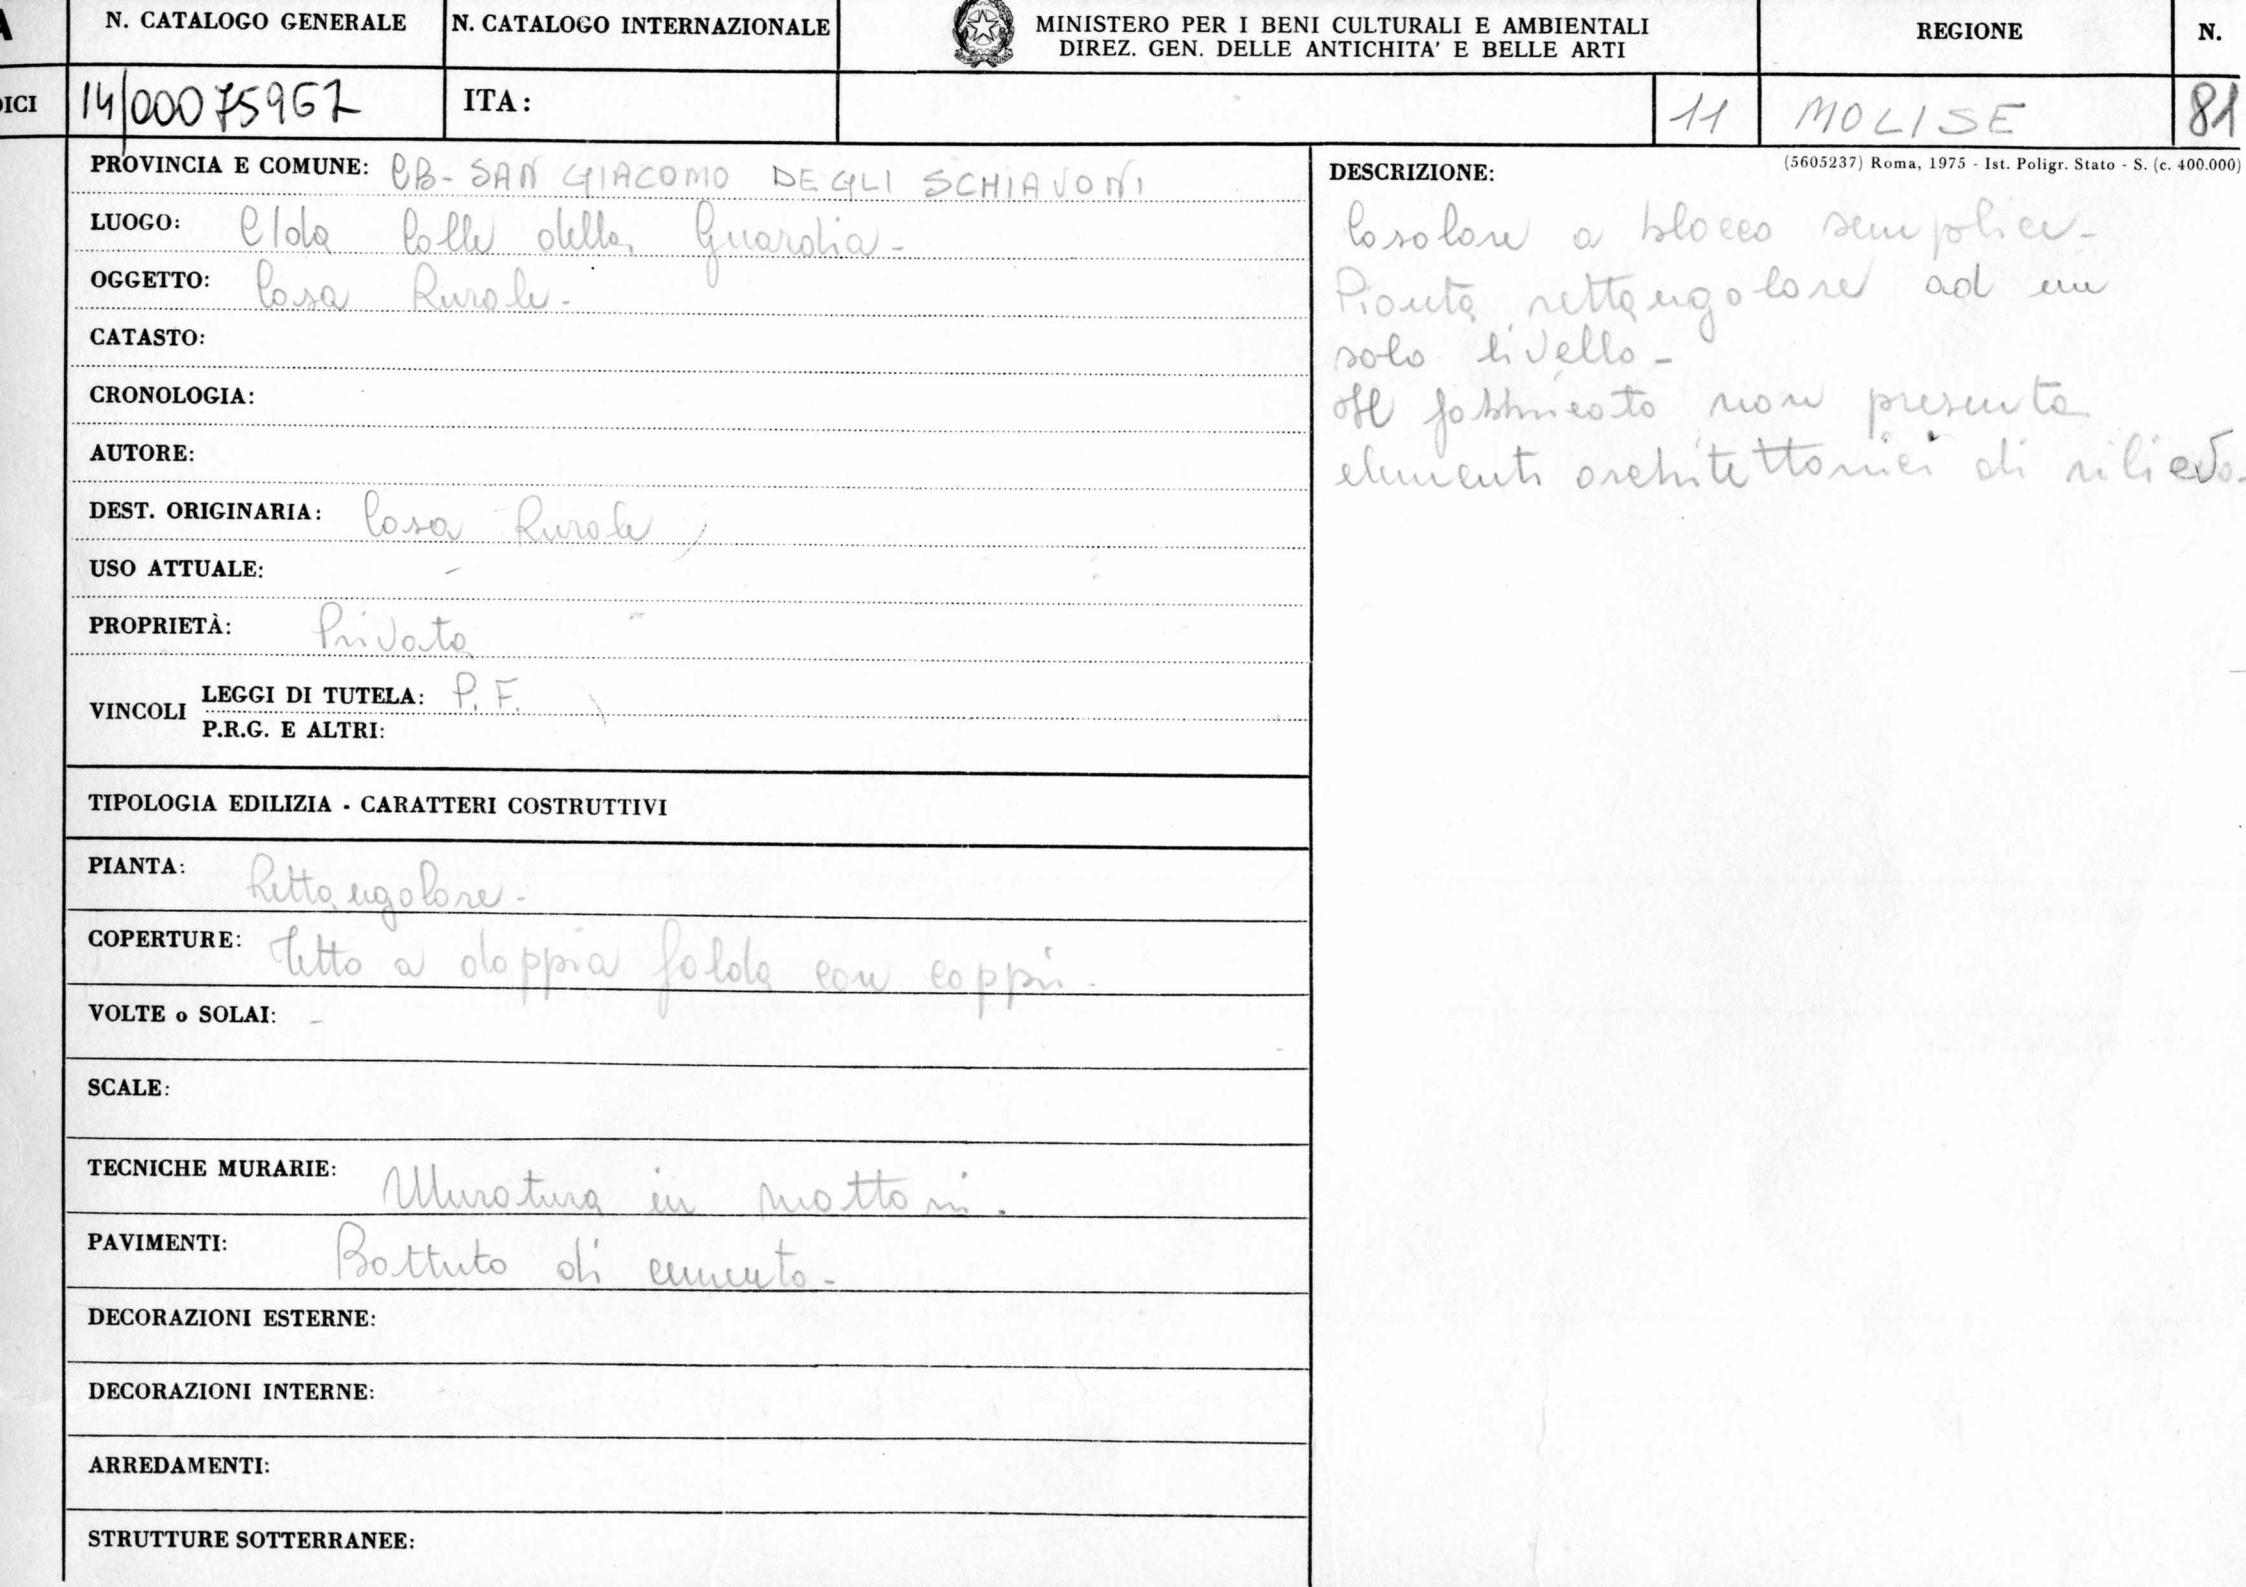 A
N. CATALOGO GENERALE
N. CATALOGO INTERNAZIONALE
MINISTERO PER I BENI CULTURALI E AMBIENTALI
DIREZ. GEN. DELLE ANTICHITA' E BELLE ARTI
REGIONE
N.
DICI
14/00075967
ITA:
11
MOLISE
81
PROVINCIA E COMUNE: CB- SAN GIACOMO DEGLI SCHIAVONI
LUOGO: C/da Colle della Guardia-
OGGETTO: Casa Rurale-
CATASTO:
CRONOLOGIA:
AUTORE:
DEST. ORIGINARIA: Casa Rurale
USO ATTUALE: -
PROPRIETÀ: Privata
VINCOLI
LEGGI DI TUTELA: P.F.
P.R.G. E ALTRI:
TIPOLOGIA EDILIZIA - CARATTERI COSTRUTTIVI
PIANTA: Rettangolare-
COPERTURE: Tetto a doppia falda con coppi-
VOLTE o SOLAI: -
SCALE:
TECNICHE MURARIE: Muratura in mattoni.
PAVIMENTI: Battuto di cemento-
DECORAZIONI ESTERNE:
DECORAZIONI INTERNE:
ARREDAMENTI:
STRUTTURE SOTTERRANEE:
DESCRIZIONE:
(5605237) Roma, 1975 - Ist. Poligr. Stato - S. (c. 400.000)
Casolare a blocco semplice-
Pianta rettangolare ad un
solo livello-
Il fabbricato non presenta
elementi architettonici di rilievo-